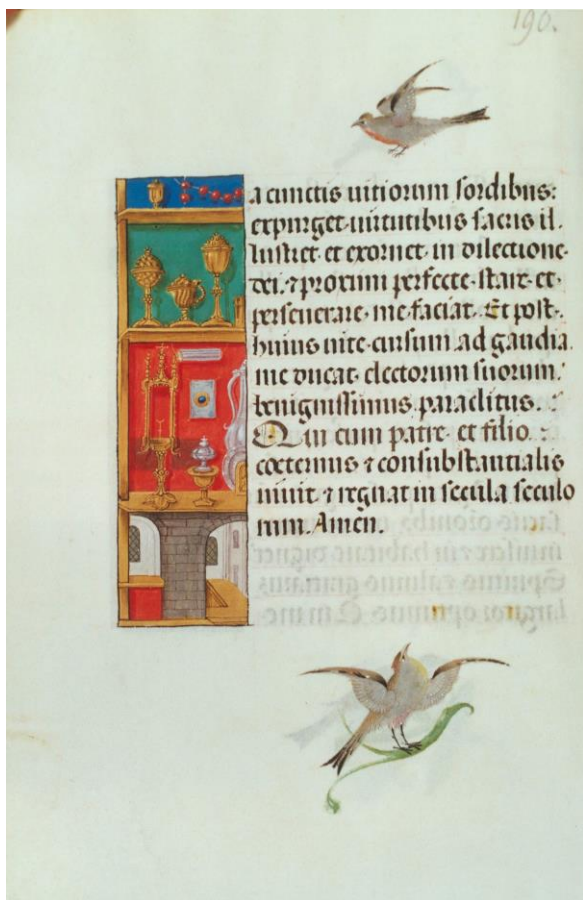 190.
a cunctis uitiorum sordibus:
expurget. uirtutibus sacris il.
lustret. et exornet. in dilectione.
dei. ⁊ proximi perfecte. stare. et.
perseuerare. me. faciat. Et post.
huius uite. cursum. ad gaudia.
me ducat. electorum suorum.
benignissimus. paraclitus.
Qui cum patre. et filio.
coeternus ⁊ consubstantialis
uiuit. ⁊ regnat in secula seculo
rum. Amen.